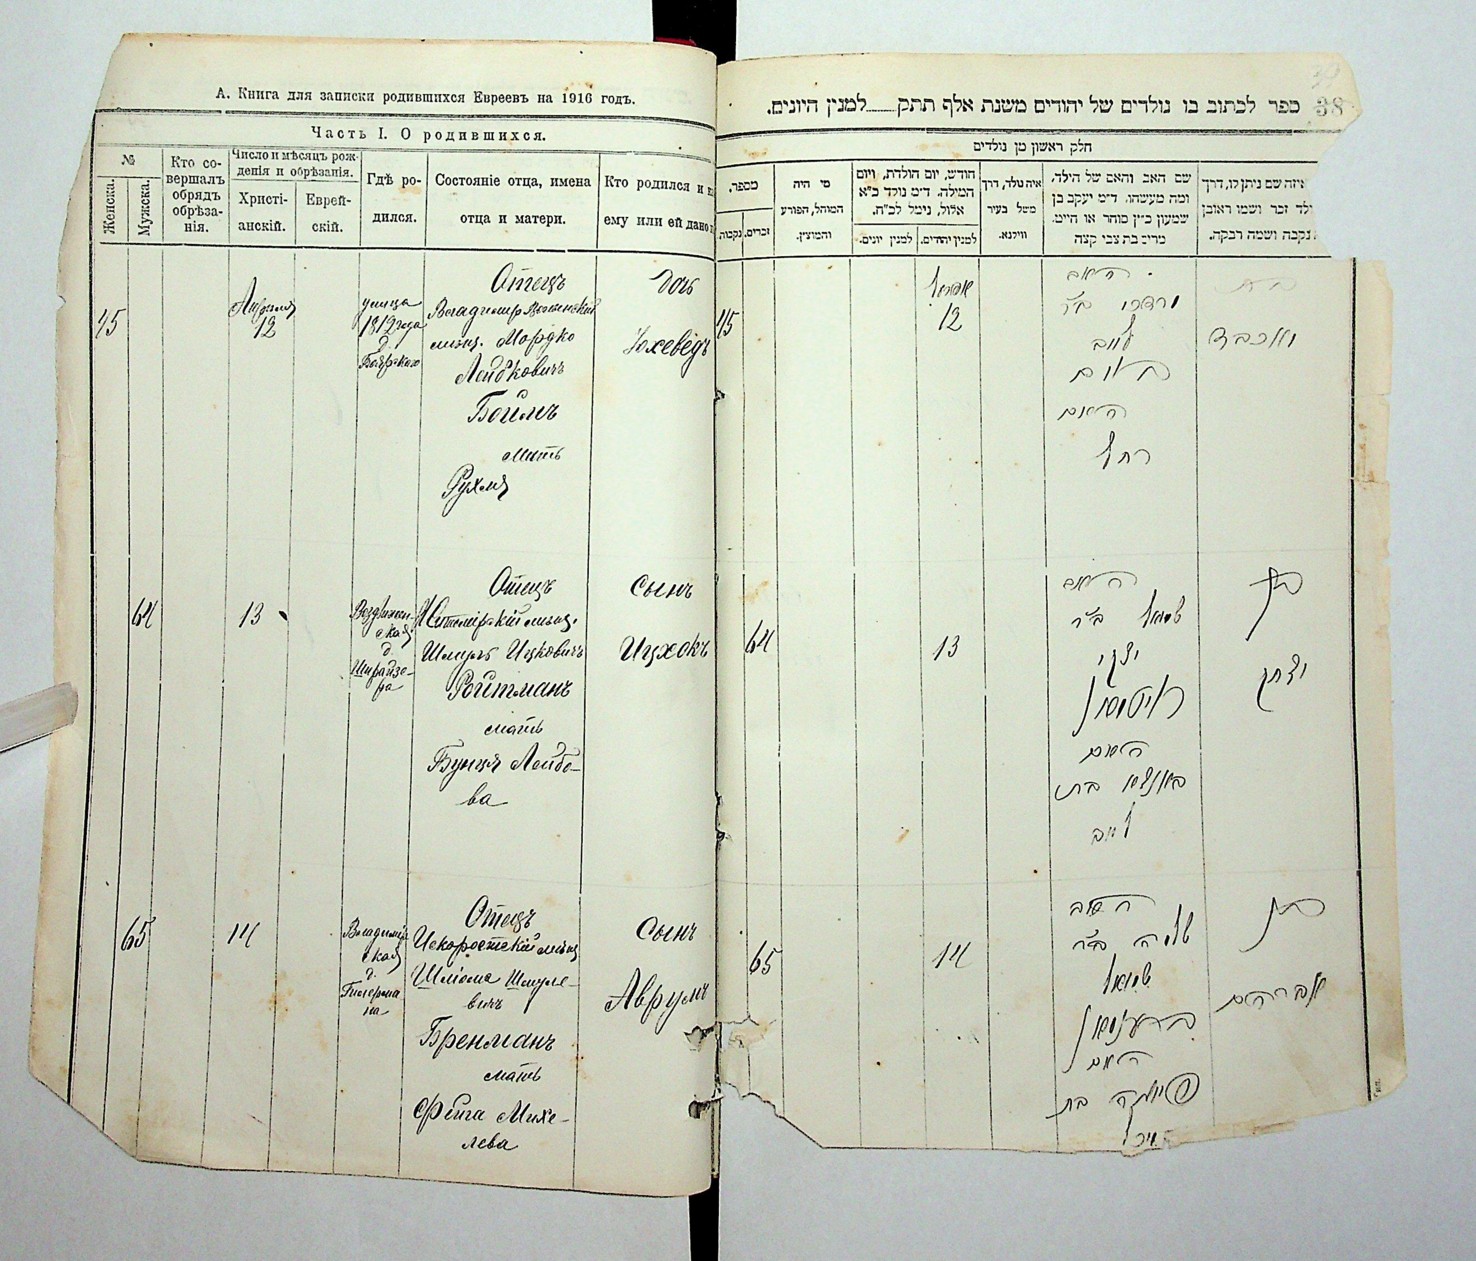 А. Книга для записки родившихся Евреевъ на 1916 годъ.
Часть I. О родившихся.
№
Женска.
Мужска.
Кто со-
вершалъ
обрядъ
обрѣза-
нія.
Число и мѣсяцъ рож-
денія и обрѣзанія.
Христі-
анскій.
Еврей-
скій.
Гдѣ ро-
дился.
Состояніе отца, имена
отца и матери.
Кто родился и
ему или ей дано
45
Апрѣля
12
улица
1812 года
д.
Боярскаго
Отецъ
Владимир Волынский
мѣщ. Мордко
Лейбковичъ
Боймъ
мать
Рухля
дочь
Іохеведъ
64
13
Воздвижен-
ская
д.
Шнрайзе-
ра
Отецъ
Житомірскій мѣщ.
Шмуль Ицковичъ
Ройтманъ
мать
Бунця Лейбо-
ва
сынъ
Ицхокъ
65
14
Владимір
ская
д.
Гилерма
на
Отецъ
Искоростскій мѣщ
Шліома Шмуле-
вичъ
Бренманъ
мать
Фейга Михе-
лева
сынъ
Аврумъ
38
ספר לכתוב בו נולדים של יהודים משנת אלף תתק למנין היונים.
חלק ראשון מן נולדים
מספר,
נקבות.
זכרים.
מי היה
המוהל, הפורע
והמוצץ.
חודש, יום הולדת, ויום
המילה. ד״מ נולד כ״א
אלול, נימל לכ״ח.
למנין יונים.
למנין יהודים.
איה נולד, דרך
משל בעיר
ווילנא.
שם האב והאם של הילד,
ומה מעשהו. ד״מ יעקב בן
שמעון כ״ץ סוחר או חייט.
מרים בת צבי קצה
איזה שם ניתן לו, דרך
ולד זכר ושמו ראובן
נקבה ושמה רבקה.
45
אפריל
12
האב
מרדכי ב״ר
לייב
בוים
האם
רחל
יאכבד
64
13
האב
שמואל ב״ר
יצקי
רויטמאן
האם
באנציא בת
לייב
בן
יצחק
65
14
האב
שלמה ב״ר
שמואל
ברענמאן
האם
פייגא בת
בן
אברהם